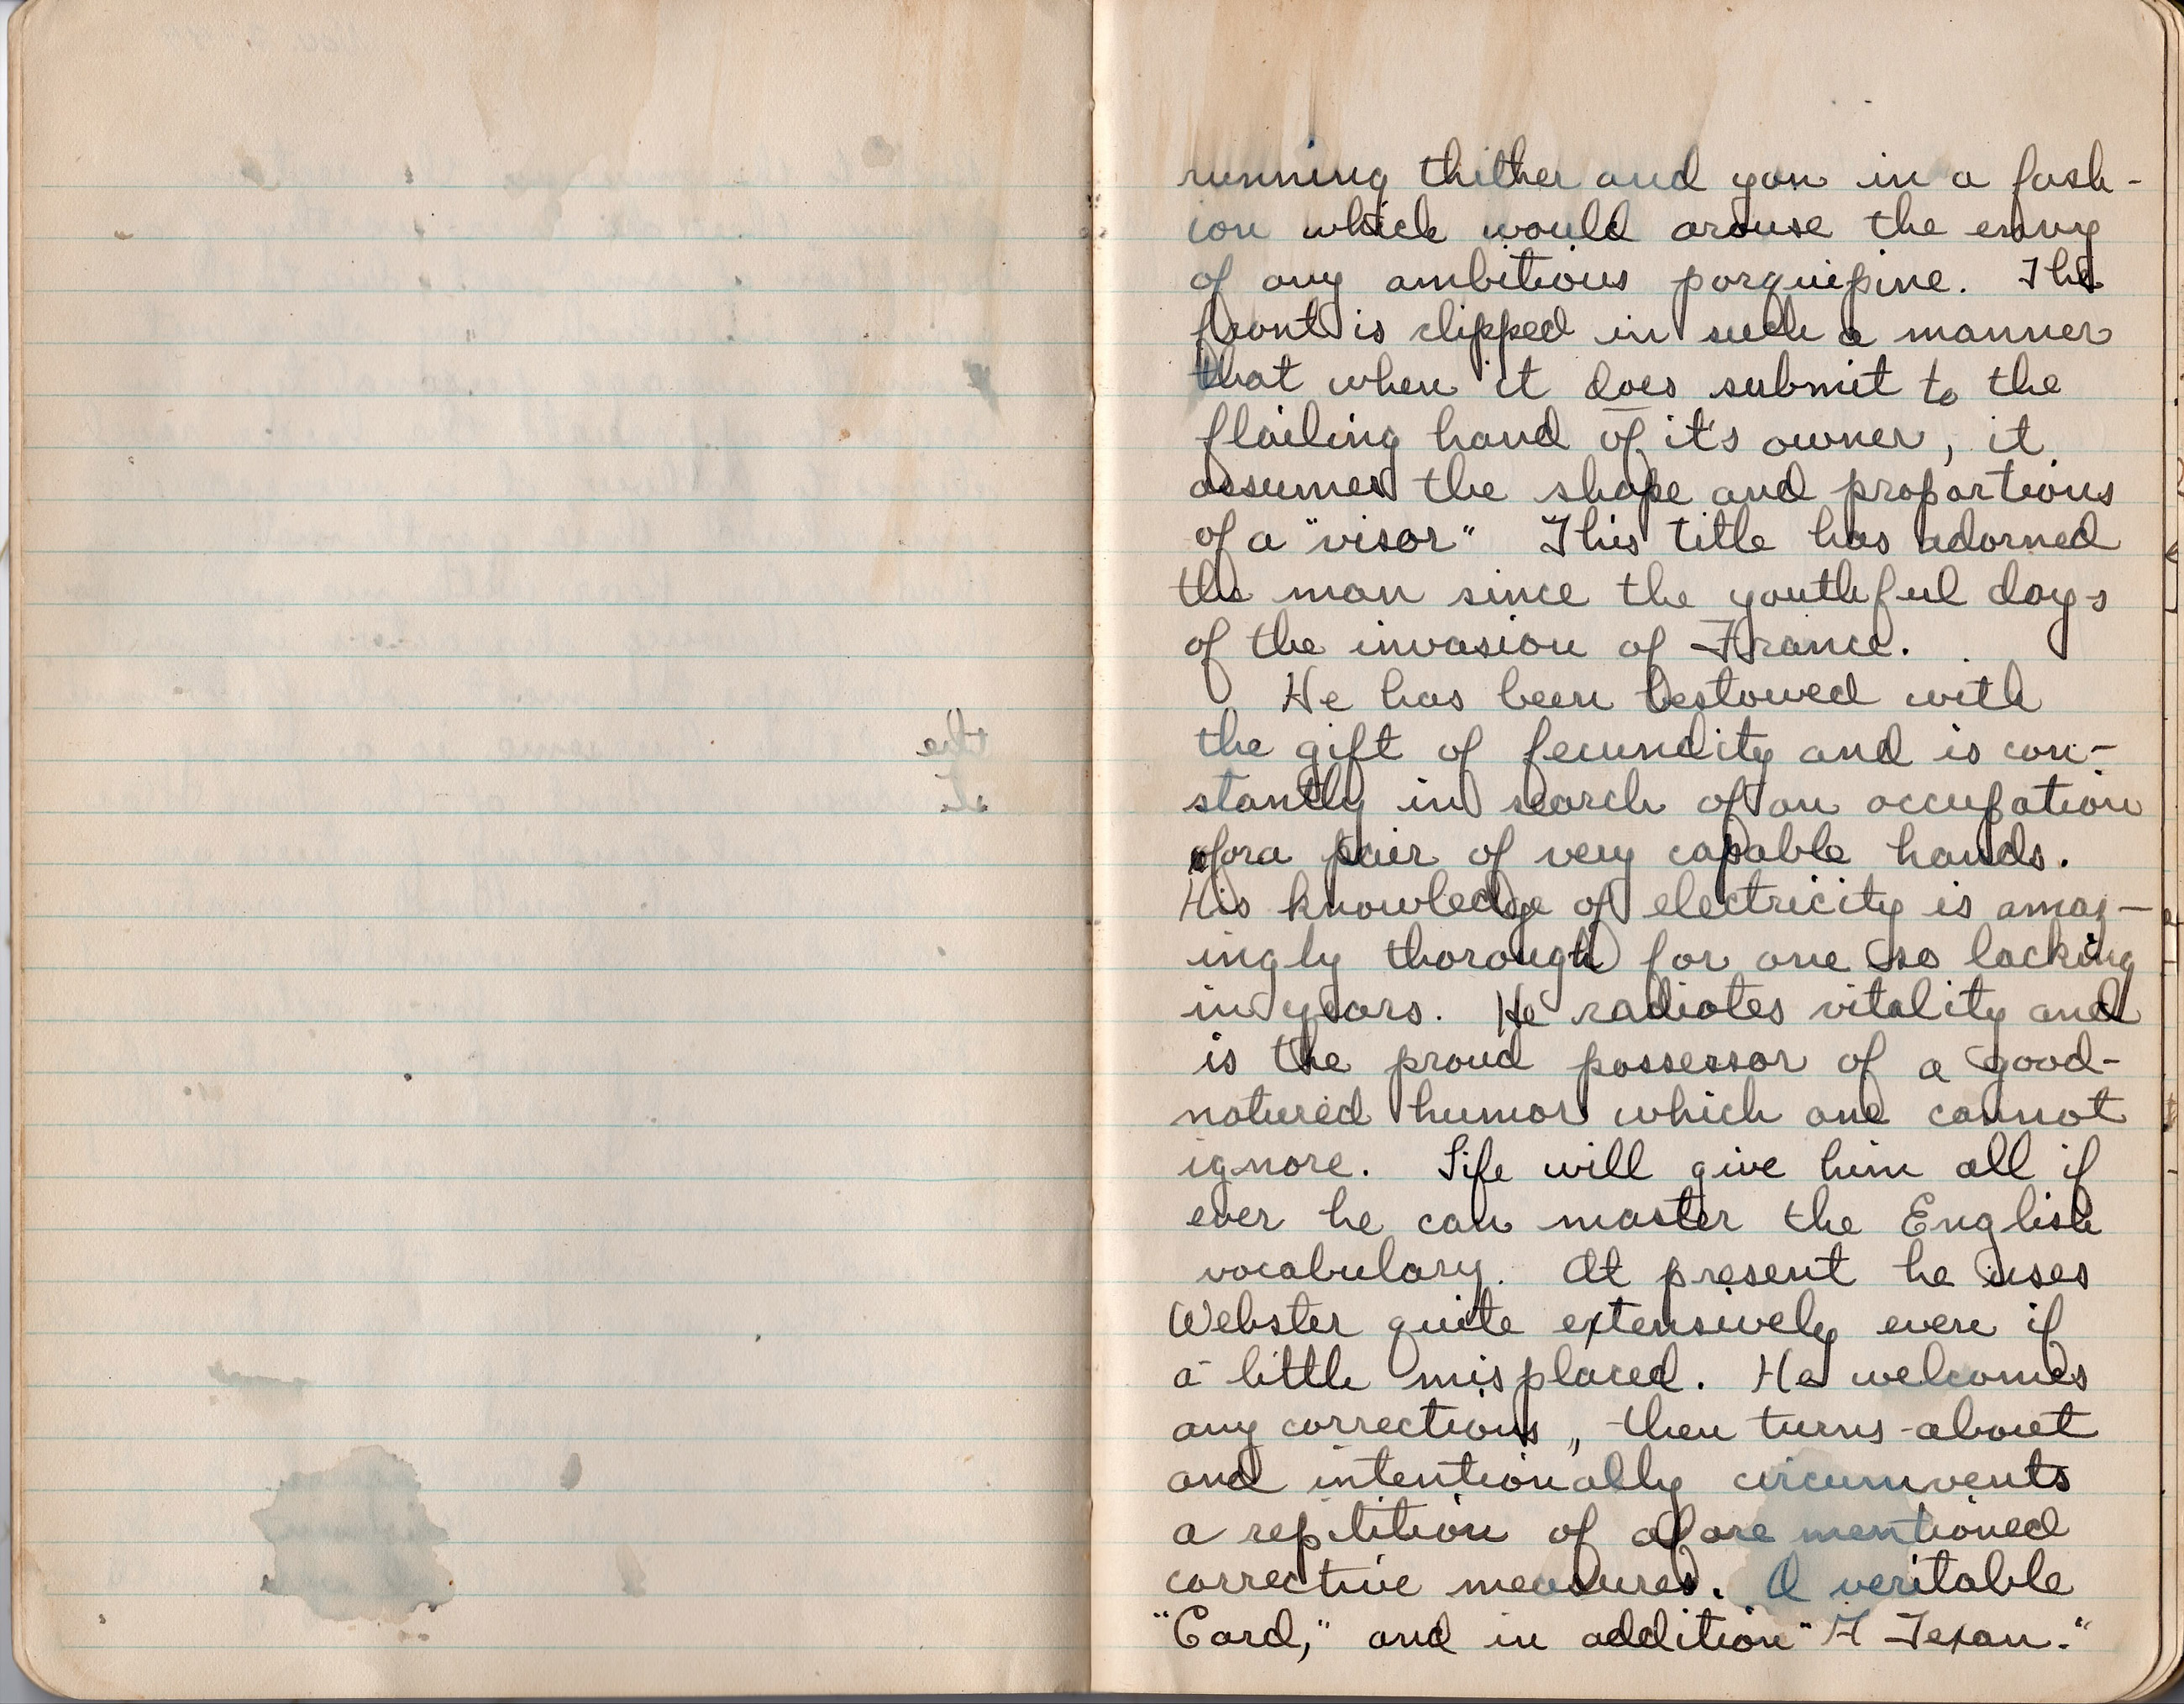 running thither and yon in a fash-
ion which would arouse the envy
of any ambitious porquipine. The
front is clipped in such a manner
that when it does submit to the
flailing hand of it's owner, it
assumes the shape and proportions
of a "visor" This title has adorned
the man since the youthful days
of the invasion of France.
He has been bestowed with
the gift of fecundity and is con-
stantly in search of an occupation
for a pair of very capable hands.
His knowledge of electricity is amaz-
ingly thorough for one so lacking
in years. He radiates vitality and
is the proud possessor of a good-
natured humor which one cannot
ignore. Life will give him all if
ever he can master the English
vocabulary. At present he uses
Webster quite extensively even if
a little misplaced. He welcomes
any corrections, then turns-about
and intentionally circumvents
a repitition of afore mentioned
corrective measures. A veritable
"Card," and in addition "A Texan."